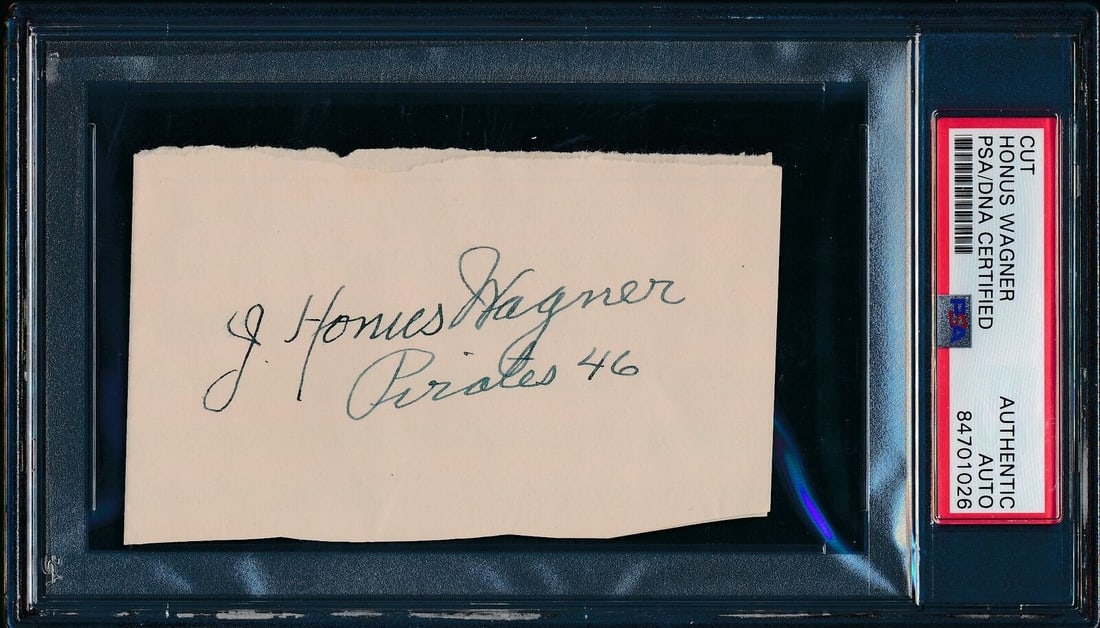 J. Honus Wagner
Pirates 46
CUT
HONUS WAGNER
PSA/DNA CERTIFIED
PSA
AUTHENTIC
AUTO
84701026